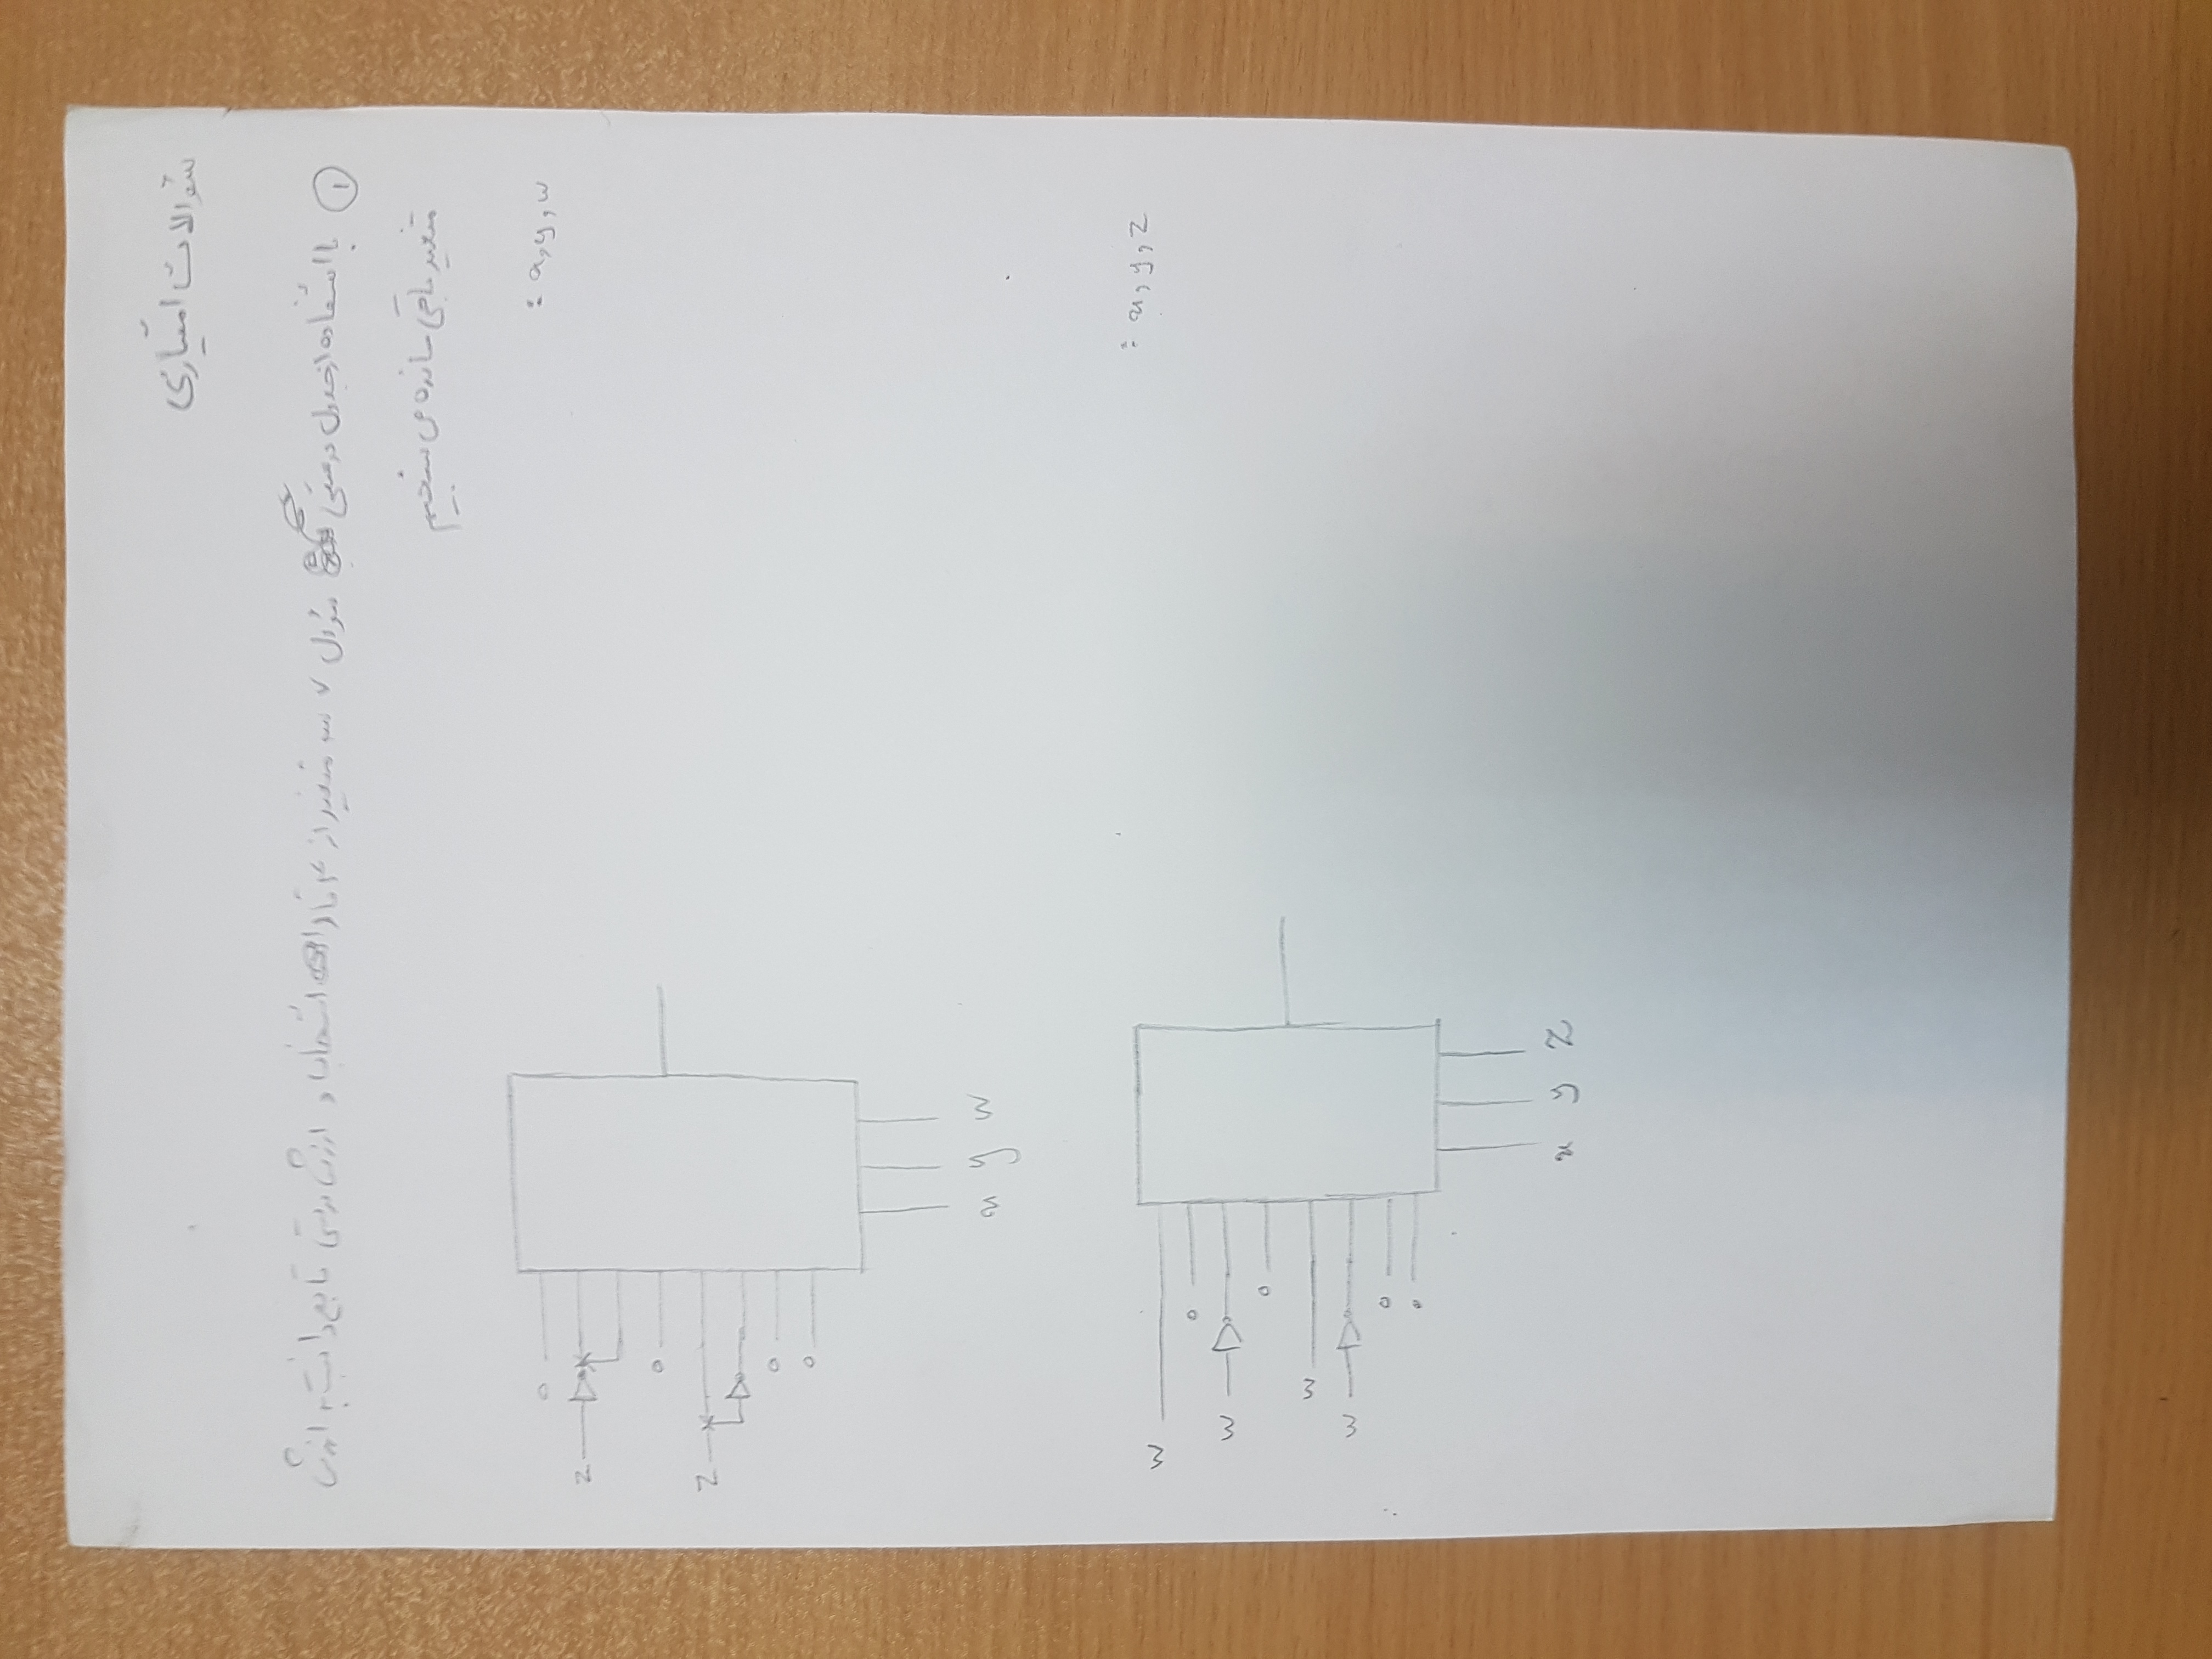 سوالات امتیازی
① با استفاده از جدول درستی سوال ۷ سه متغیر از ۴ تا را انتخاب و ارزش درستی تابع را نسبت به ارزش
متغیر باقی مانده می سنجیم
x, y, w :
0
z
0
z
0
0
x y w
x, y, z :
w
0
w
0
w
w
0
0
x y z